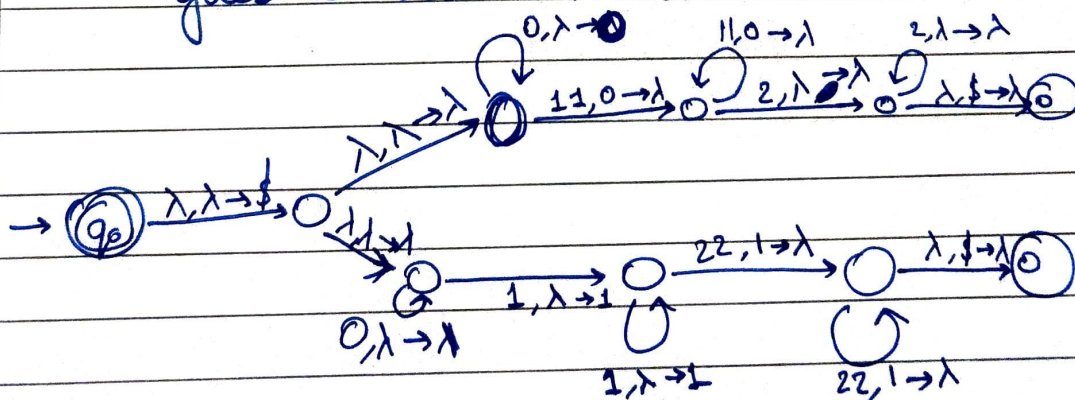 0, λ→0 11,0→λ 2,λ→λ
λ, λ→λ 11,0→λ 2,λ→λ λ,$→λ
→ q₀ λ,λ→$
λ,λ→λ 22,1→λ λ,$→λ
1,λ→1
0,λ→λ
1,λ→1 22,1→λ